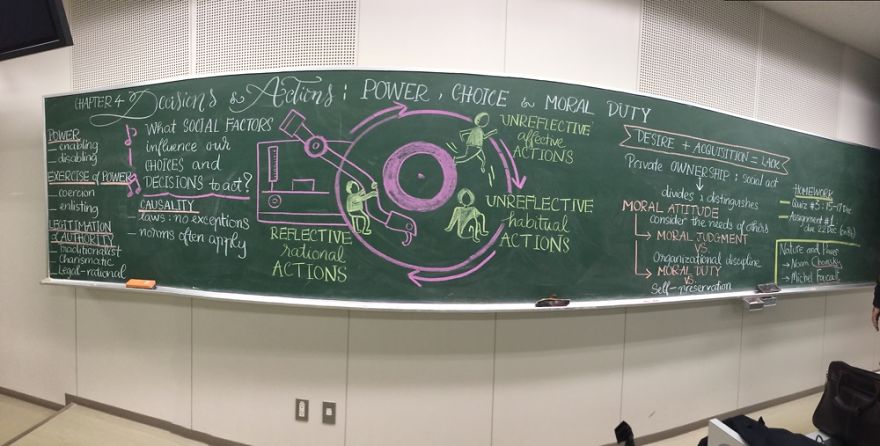 CHAPTER 4 Decisions & Actions: POWER, CHOICE & MORAL DUTY
POWER
– enabling
– disabling
EXERCISE of POWER
– coercion
– enlisting
LEGITIMATION
of AUTHORITY
– traditionalist
– charismatic
– Legal-rational
What SOCIAL FACTORS
influence our
CHOICES and
DECISIONS to act?
CAUSALITY
– laws: no exceptions
– norms often apply
REFLECTIVE
rational
ACTIONS
UNREFLECTIVE
affective
ACTIONS
UNREFLECTIVE
habitual
ACTIONS
DESIRE + ACQUISITION = LACK
Private OWNERSHIP: social act
divides & distinguishes
MORAL ATTITUDE
consider the needs of others
→ MORAL JUDGMENT
VS
Organizational discipline
→ MORAL DUTY
VS.
Self-preservation
HOMEWORK
– Quiz #5: 15-17 Dec
– Assignment #1
due 22 Dec
Nature and Power
→ Noam Chomsky
→ Michel Foucault